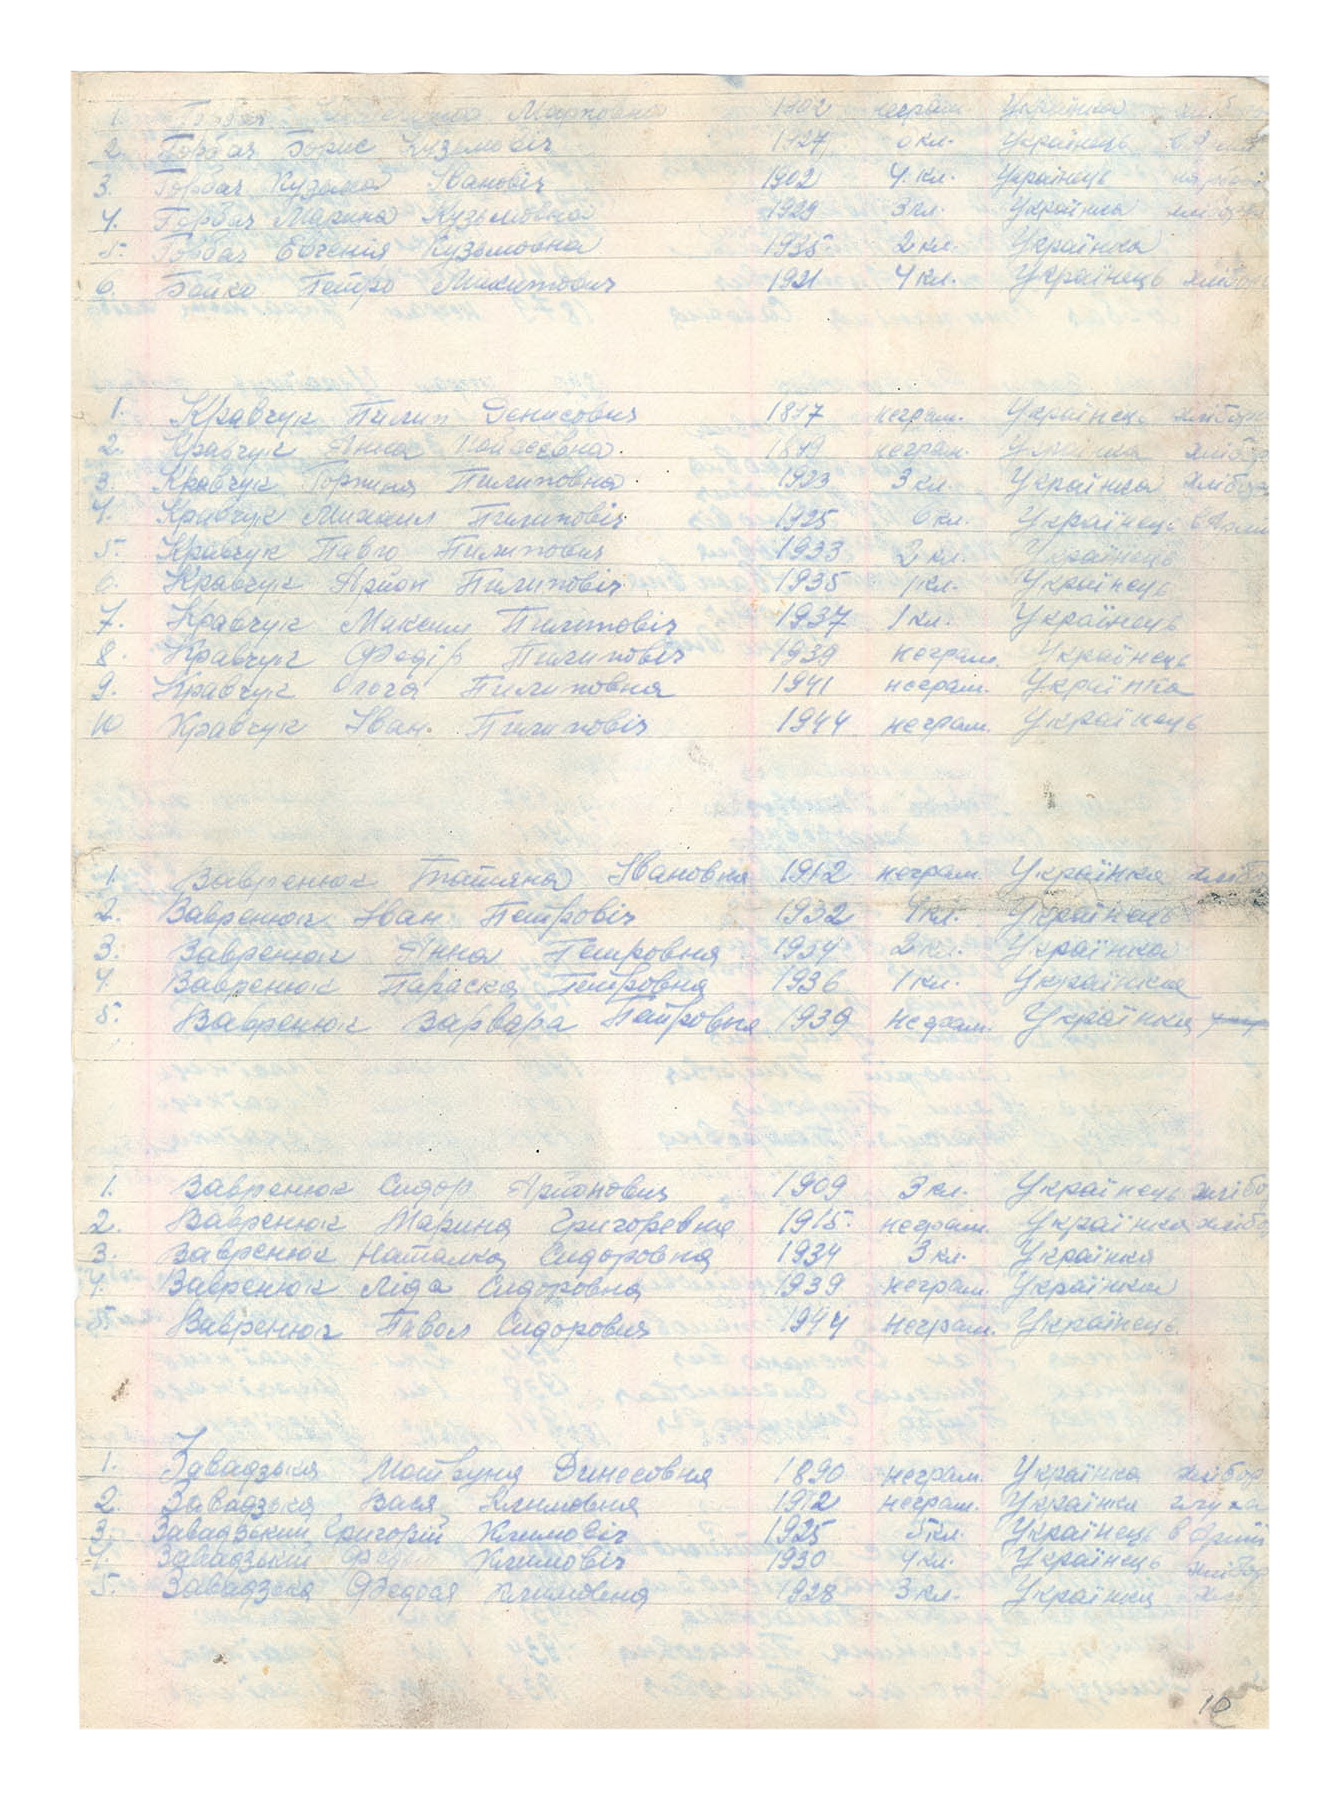 1. Горбач Марковна 1902 неграм. Українка хлібор
2. Горбач Борис Кузьмовіч 1927 6 кл. Українець в Армії
3. Горбач Кузьма Івановіч 1902 4 кл. Українець
4. Горбач Марина Кузьмовна 1929 3 кл. Українка хлібор
5. Горбач Евгенія Кузьмовна 1935 2 кл. Українка
6. Бойко Петро Микитович 1921 4 кл. Українець хлібор
1. Кравчук Пилип Денисович 1897 неграм. Українець хлібор
2. Кравчук Анна 1899 неграм. Українка хлібор
3. Кравчук Горпина Пилиповна 1923 3 кл. Українка хлібор
4. Кравчук Михаил Пилиповіч 1925 6 кл. Українець в Армии
5. Кравчук Павло Пилипович 1933 2 кл. Українець
6. Кравчук Арион Пилиповіч 1935 1 кл. Українець
7. Кравчук Максим Пилиповіч 1937 1 кл. Українець
8. Кравчук Федір Пилиповіч 1939 неграм. Українець
9. Кравчук Ольга Пилиповна 1941 неграм. Українка
10 Кравчук Іван. Пилиповіч 1944 неграм. Українець
1. Вавренюк Татьяна Івановна 1912 неграм. Українка хлібо
2. Вавренюк Іван Петровіч 1932 4 кл. Українець
3. Вавренюк Анна Петровна 1934 2 кл. Українка
4. Вавренюк Параска Петровна 1936 1 кл. Українка
5. Вавренюк Варвара Петровна 1939 неграм. Українка
1. Вавренюк Сидор Арионович 1909 3 кл. Українець хлібо
2. Вавренюк Марина Григоревна 1915. неграм. Українка хлібо
3. Вавренюк Наталка Сидоровна 1934 3 кл. Українка
4. Вавренюк Ліда Сидоровна 1939 неграм. Українка
5. Вавренюк Павол Сидорович 1944 неграм. Українець
1. Завадзька Мотвуня Динесовна 1890 неграм. Українка хлібор
2. Завадзька Вася Климовна 1912 неграм. Українка глуха
3. Завадзький Григорій Климовіч 1925 5 кл. Українець в Армії
4. Завадзький Климовіч 1930 4 кл. Українець хлібор
5. Завадзска Федося Климовна 1928 3 кл. Українка
10